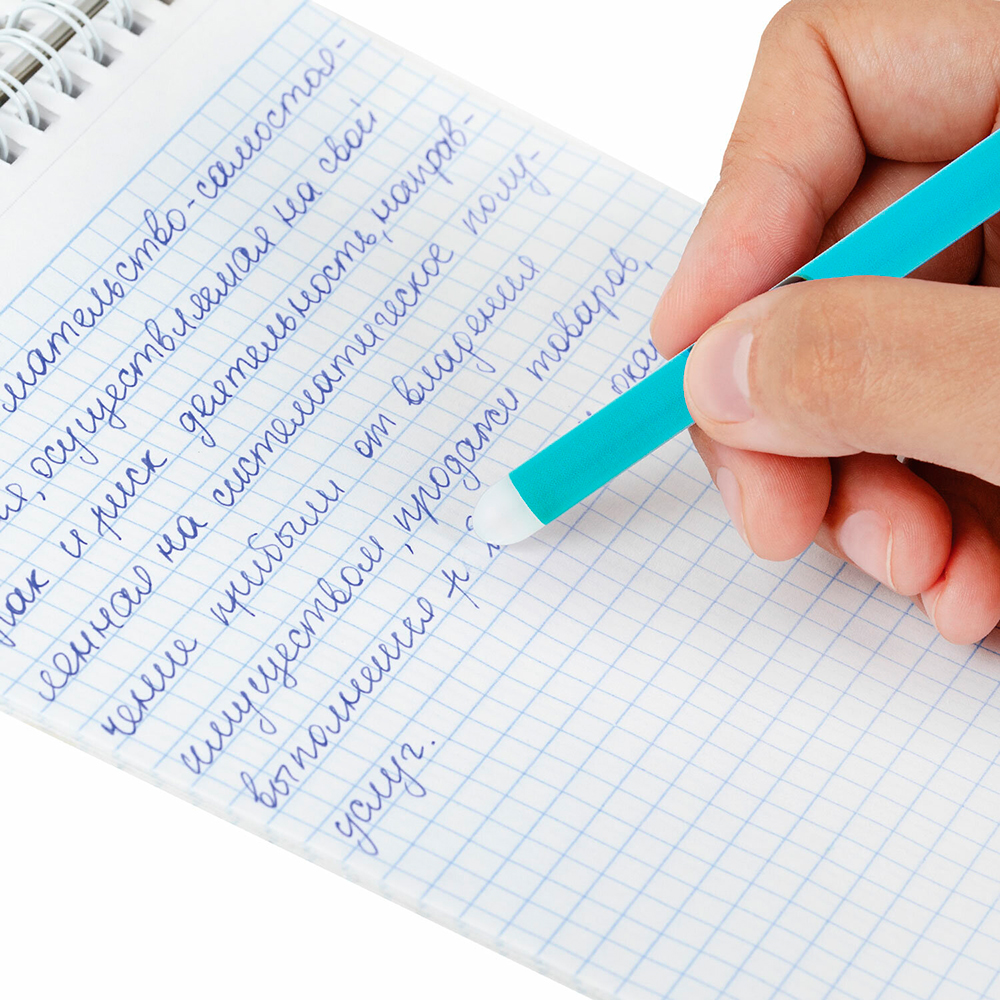 мательство-самостоя-
ая, осуществляемая на свой
риск деятельность, направ-
ленная на систематическое полу-
чение прибыли от владения
имуществом, продажи товаров,
выполнения р
услуг.